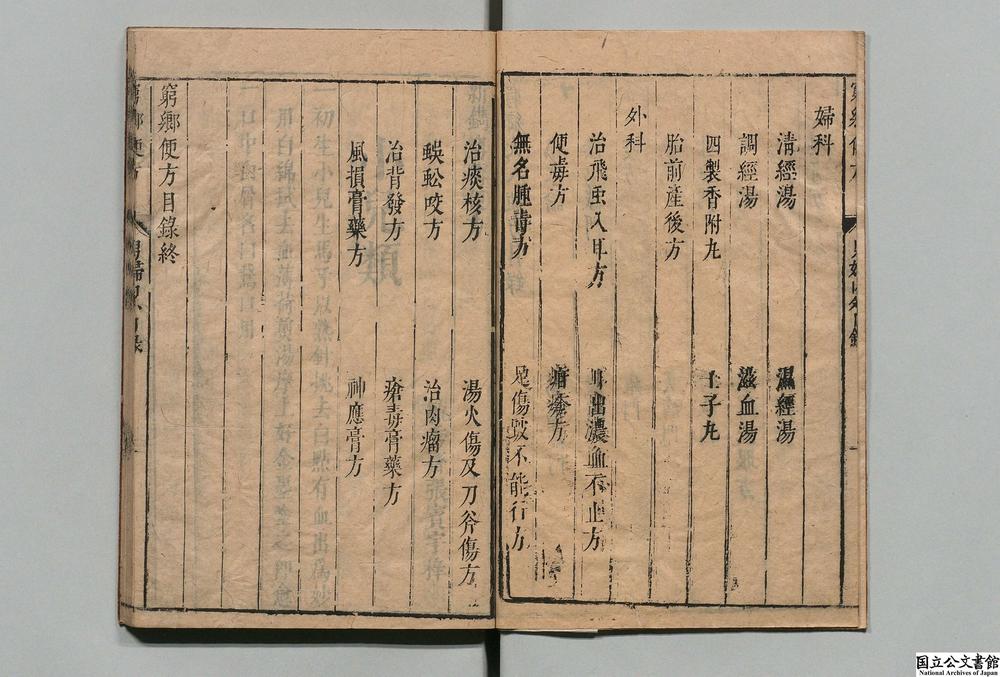 婦科
清經湯
溫經湯
調經湯
滋血湯
四製香附丸
壬子丸
胎前産後方
外科
治飛虫入耳方
耳出濃血不止方
便毒方
疳瘡方
無名腫毒方
足傷毀不能行方
治痰核方
湯火傷及刀斧傷方
蜈蚣咬方
治肉瘤方
治背發方
瘡毒膏藥方
風損膏藥方
神應膏方
窮鄉便方目錄終
窮鄉便方
国立公文書館
National Archives of Japan